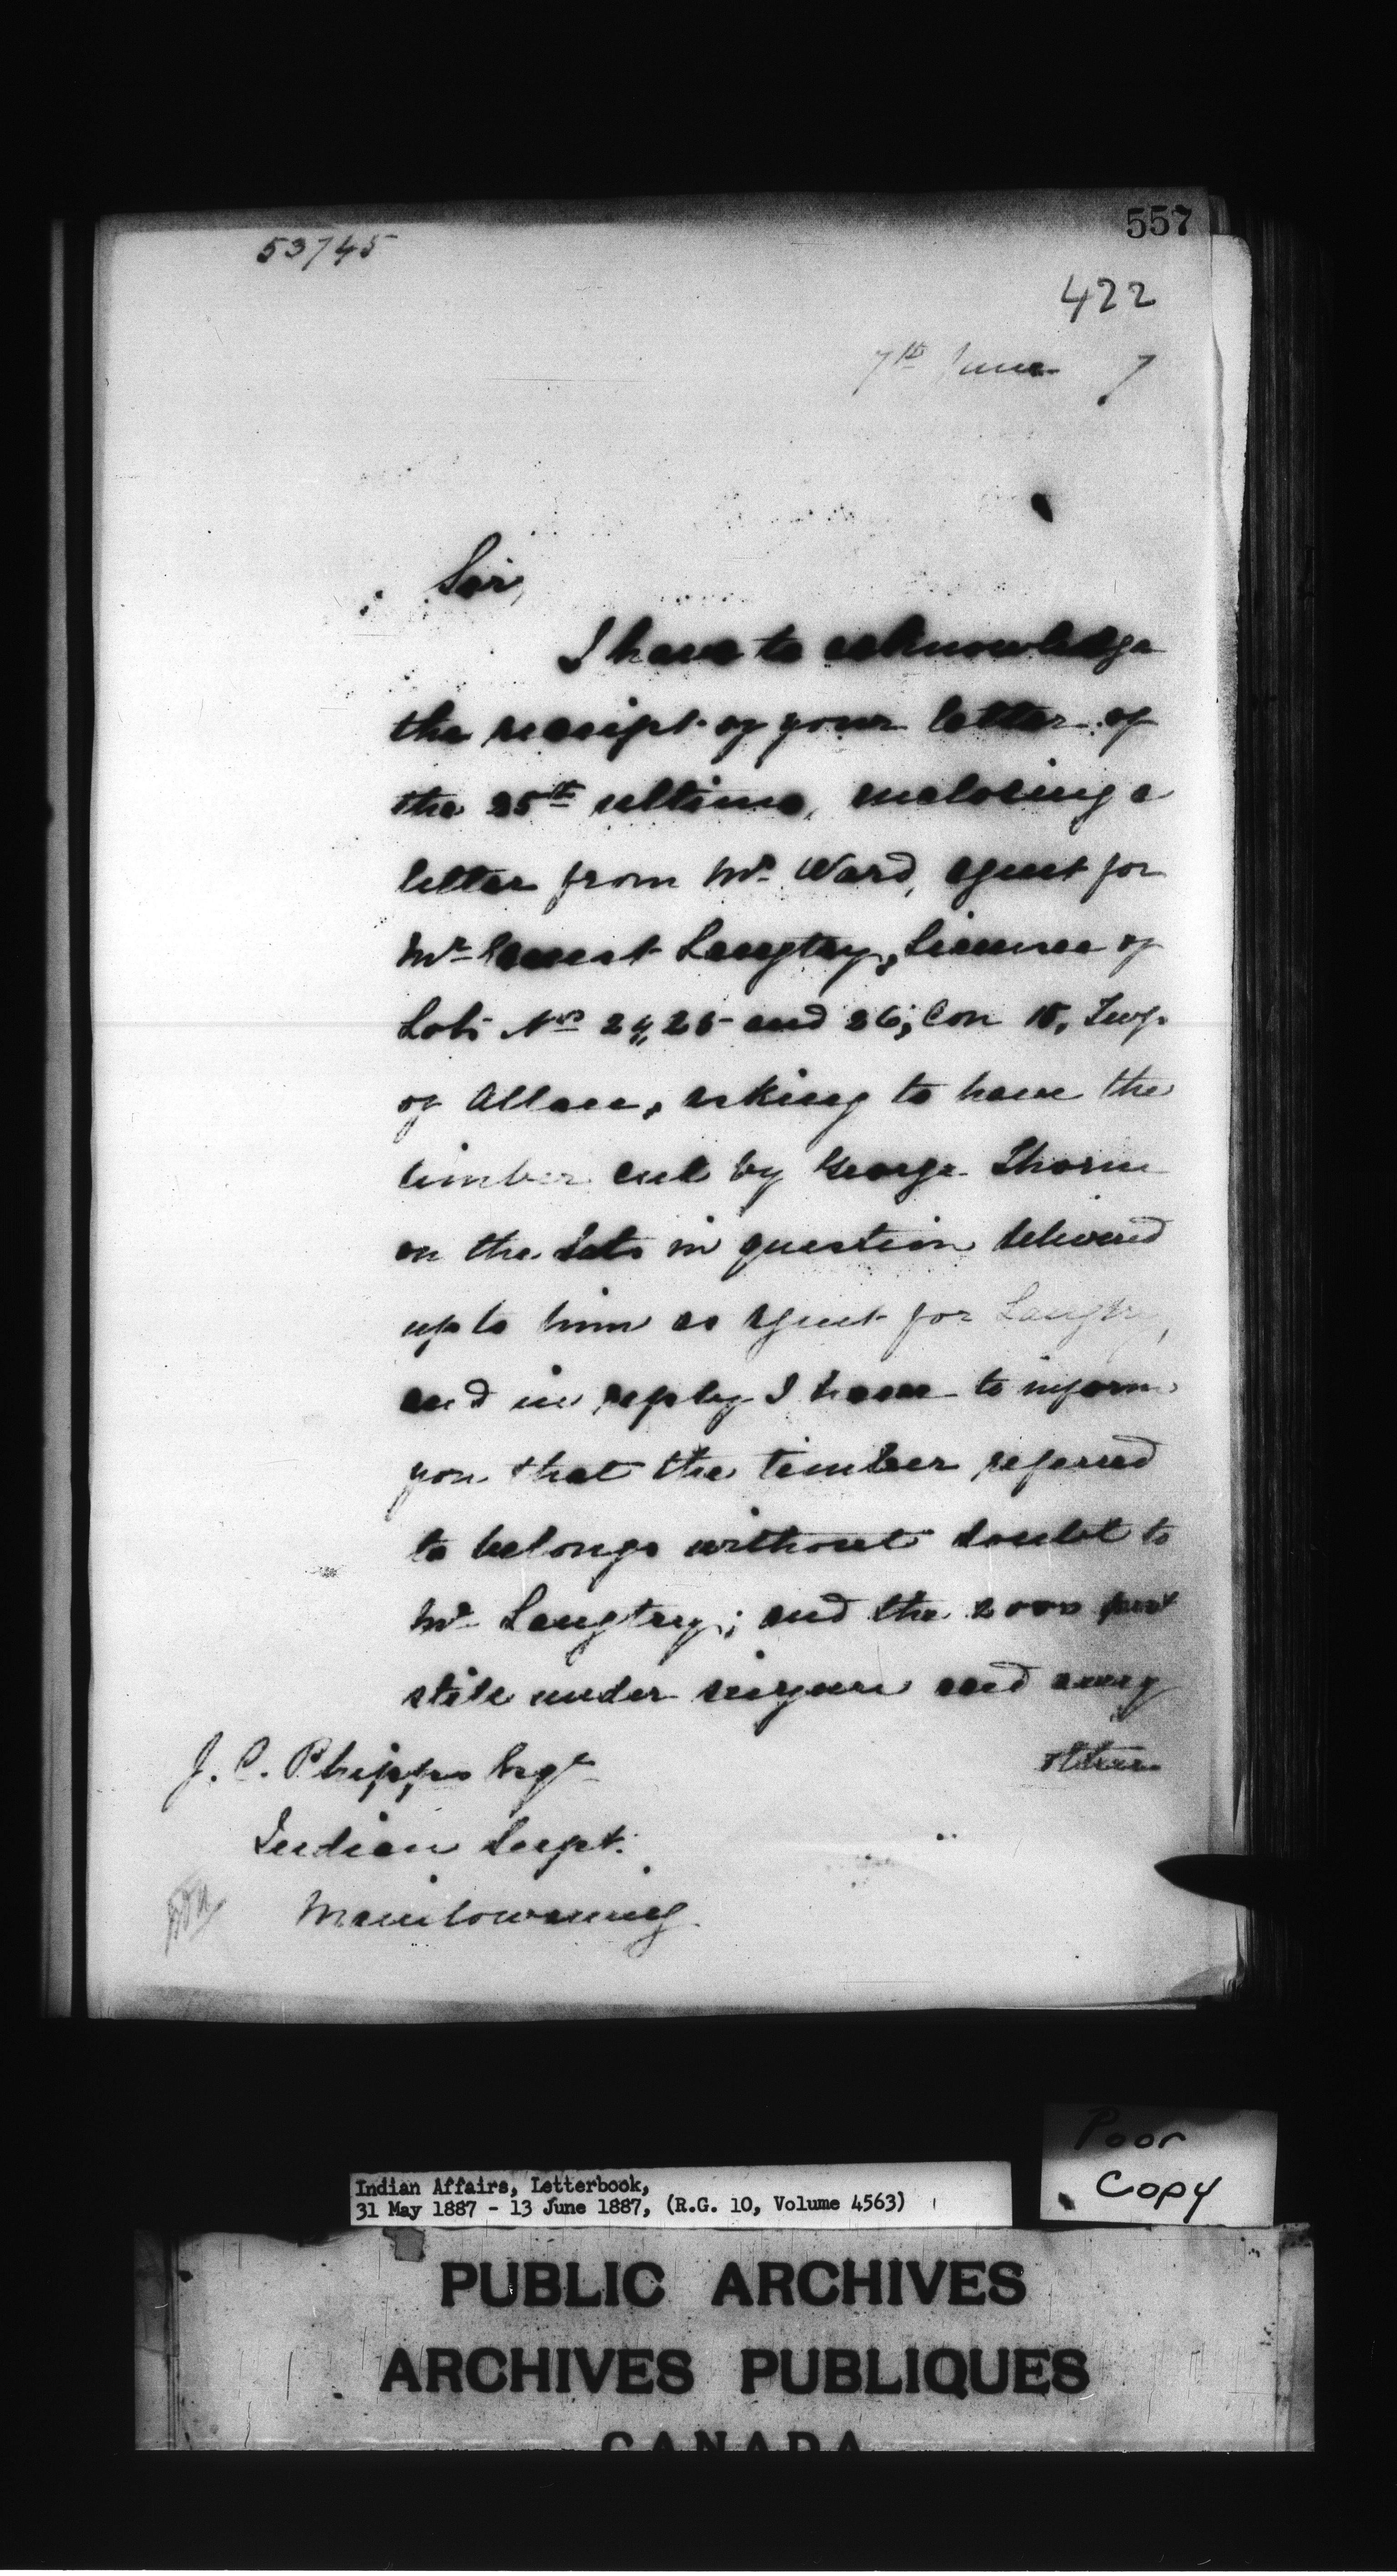 557
53745
422
7th June 7
Sir,
I have to acknowledge
the receipt of your letter of
the 25th ultimo, enclosing a
letter from Mr. Ward, agent for
Mr. Ernest Langtry, Licensee of
Lots Nos 24, 25 and 26, Con 15, Twp.
of Allan, asking to have the
timber cut by George Thorne
on the lots in question delivered
up to him as agent for Langtry,
and in reply I have to inform
you that the timber referred
to belongs without doubt to
Mr. Langtry; and the 2000 feet
still under seizure and any
other
J. C. Phipps Esqr
Indian Supt.
Manitowaning.
Poor
Copy
Indian Affairs, Letterbook,
31 May 1887 - 13 June 1887, (R.G. 10, Volume 4563)
PUBLIC ARCHIVES
ARCHIVES PUBLIQUES
CANADA